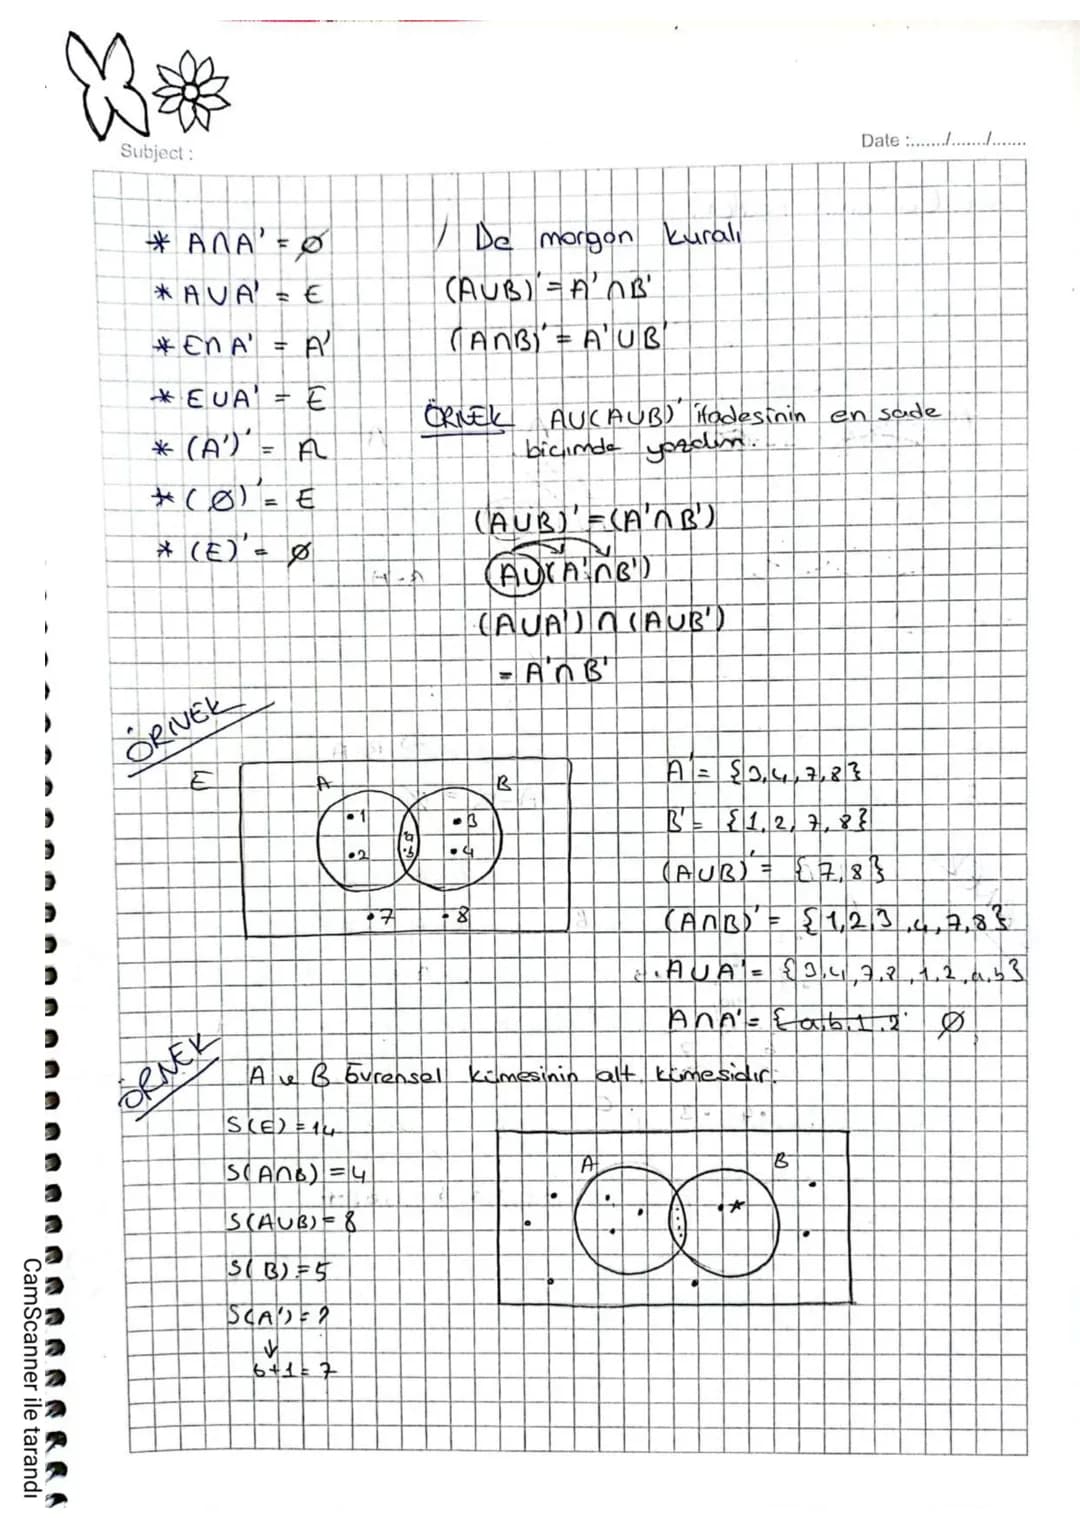 Subject :
Date :......./......./.......
* A∩A' = ∅
* A∪A' = E
* E∩A' = A'
* E∪A' = E
* (A')' = A
* (∅)' = E
* (E)' = ∅
/ De morgan kuralı
(A∪B)' = A'∩B'
(A∩B)' = A'∪B'
ÖRNEK A∪(A∪B)' ifadesinin en sade
biçimde yazalım.
(A∪B)' = (A'∩B')
A∪(A'∩B')
(A∪A')∩(A∪B')
= A'∩B'
ÖRNEK
E
A
B
•1
•2
a
•b
•3
•4
•7
•8
A' = {3,4,7,8}
B' = {1,2,7,8}
(A∪B)' = {7,8}
(A∩B)' = {1,2,3,4,7,8}
A∪A' = {3,4,7,8,1,2,a,b}
A∩A' = {a,b,1,2 ∅
ÖRNEK
A ve B Evrensel kümesinin alt kümesidir.
S(E) = 14
S(A∩B) = 4
S(A∪B) = 8
S(B) = 5
S(A') = ?
↓
6+1 = 7
A
B
CamScanner ile tarandı